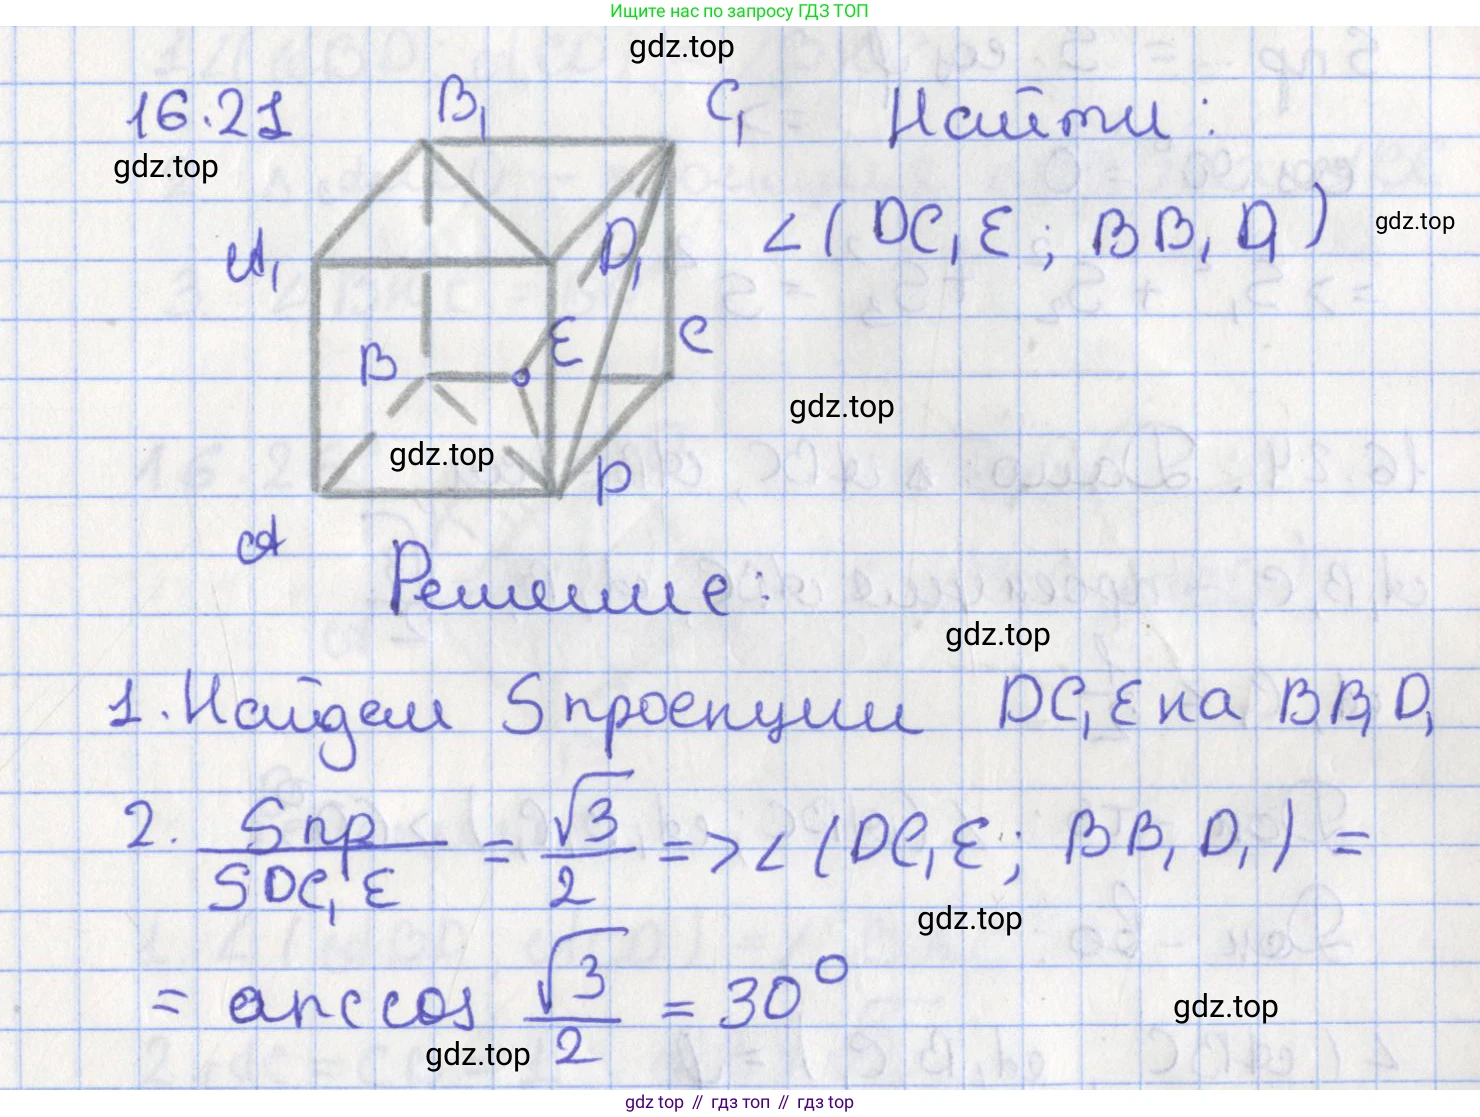 Ищите нас по запросу ГДЗ ТОП
gdz.top
16.21 B₁ C₁ Найти:
gdz.top
A₁ D₁ ∠(DC₁E; BB₁D₁) gdz.top
B E C
gdz.top
gdz.top
D
A
Решение:
gdz.top
1. Найдем Sпроекции DC₁E на BB₁D₁
2. Sпр/SDC₁E = √3/2 => ∠(DC₁E; BB₁D₁) =
gdz.top
= arccos √3/2 = 30°
gdz.top
gdz.top
gdz top // гдз топ // гдз top